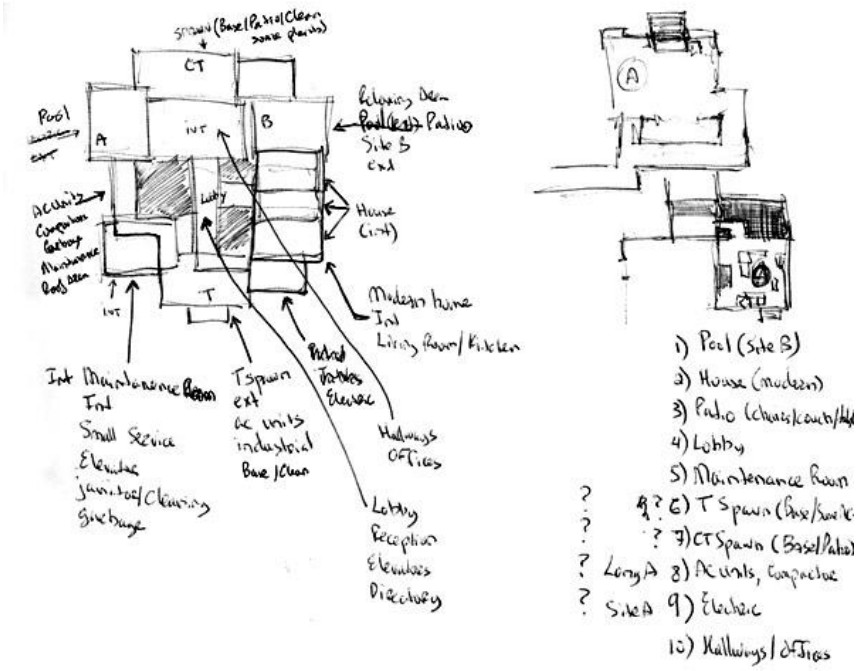 Spawn (Base/Patio/Clean
some plants)
CT
Pool
A
INT
B
Relaxing Area
Pool (ext) Patio
Site B
Ext
AC Units
Compactor
Garbage
Maintenance
Roof Area
Lobby
House
(int)
INT
T
Modern home
Int
Living Room/Kitchen
Int Maintenance Room
Int
Small Service
Elevator
janitor/Cleaning
garbage
T Spawn
ext
ac units
industrial
Base/Clean
Electric
Hallways
Offices
Lobby
Reception
Elevators
Directory
A
A
1) Pool (Site B)
2) House (modern)
3) Patio (chairs/couch/
4) Lobby
5) Maintenance Room
? ? 6) T Spawn (Base/
? ? 7) CT Spawn (Base/Patio)
? Long A 8) AC Units, Compactor
? Site A 9) Electric
10) Hallways/offices